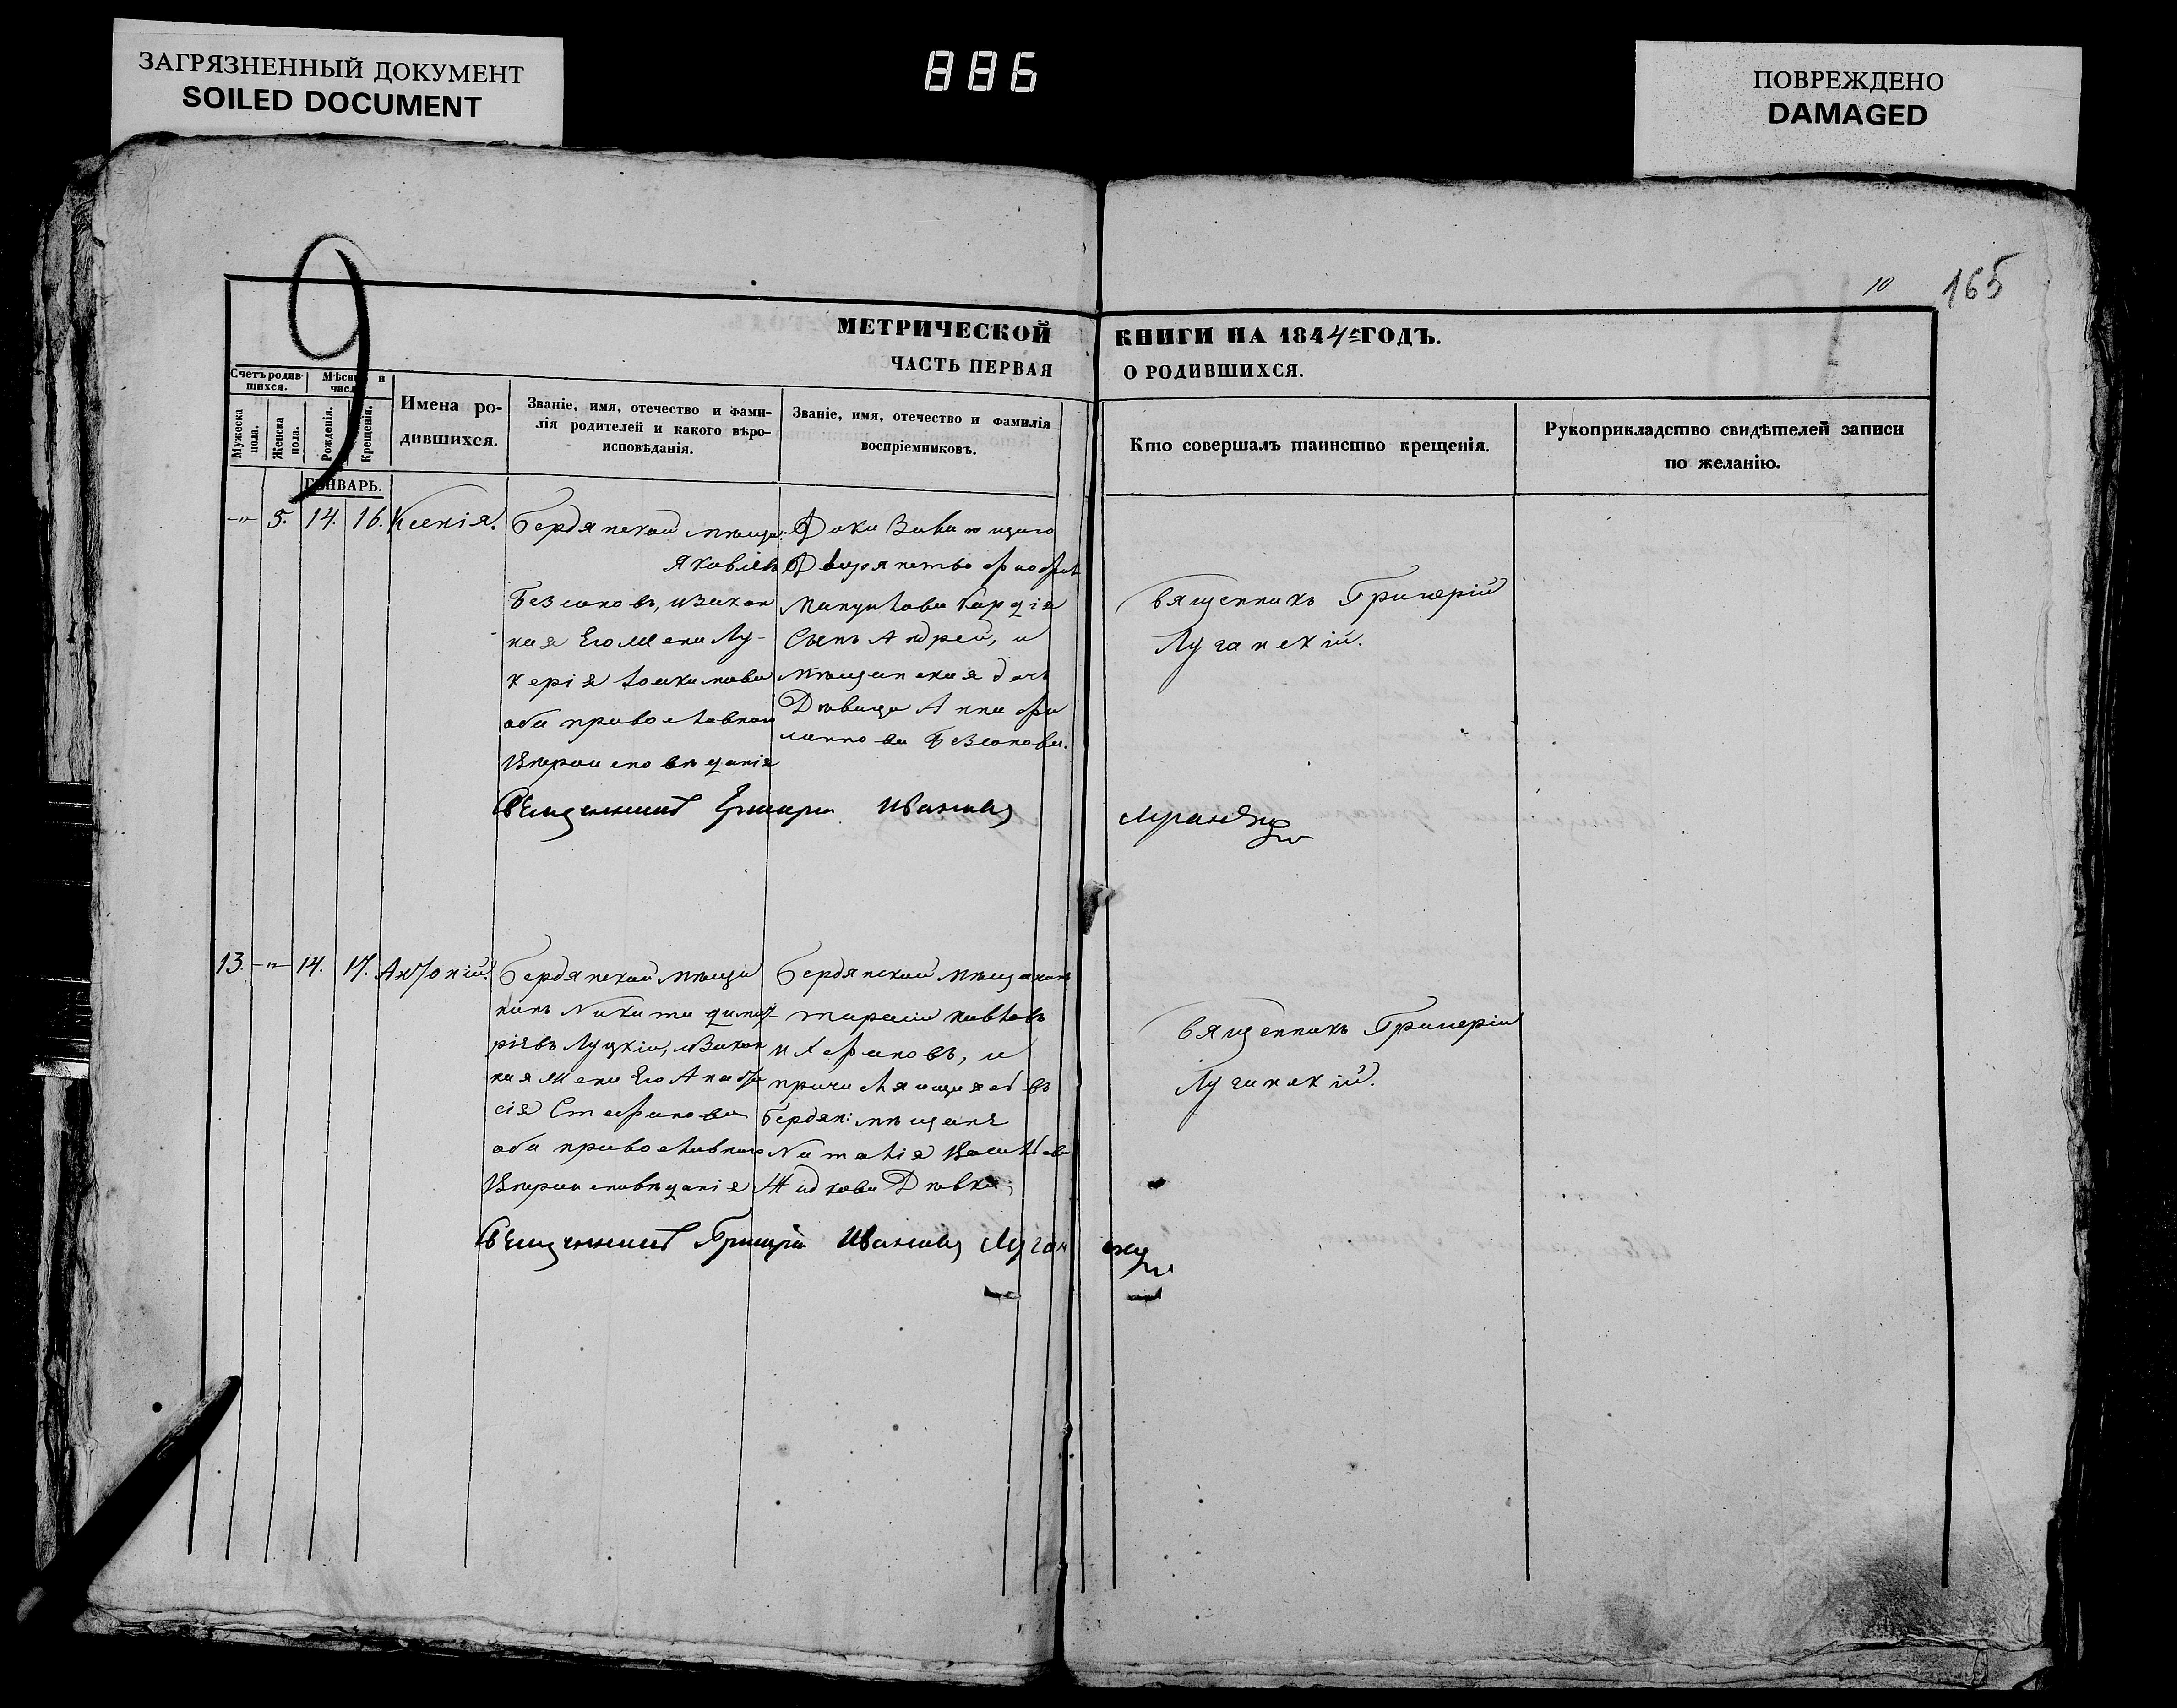 ЗАГРЯЗНЕННЫЙ ДОКУМЕНТ
SOILED DOCUMENT
886
ПОВРЕЖДЕНО
DAMAGED
9
10
165
МЕТРИЧЕСКОЙ
КНИГИ НА 1844 ГОДЪ.
ЧАСТЬ ПЕРВАЯ
О РОДИВШИХСЯ.
Счетъ родив-
шихся.
Мужеска
пола.
Женска
пола.
Мѣсяцъ и
число
Рожденія.
Крещенія.
Имена ро-
дившихся.
Званіе, имя, отечество и фами-
лія родителей и какого вѣро-
исповѣданія.
Званіе, имя, отечество и фамилія
воспріемниковъ.
Кто совершалъ таинство крещенія.
Рукоприкладство свидѣтелей записи
по желанію.
ГЕНВАРЬ.
-"- 5. 14. 16. Ксенія.
Бердянской мѣща:
Яковлевъ
Безсоновъ, изакон
ная Его жена Лу-
керія
оба православнаго
Вѣроисповѣданія
Сынъ Андрей, и
мѣщанская дочь
Дѣвица Анна
Безсонова.
Священникъ Григорій
Луганскій.
Священникъ Григорій Ивановъ
Луганскій
13. -"- 14. 17. Антоній.
Бердянской мѣща
нинъ Никита Димит-
ріевъ Луцкій, изакон
ная жена Его Анаста
сія Стефанова
оба православнаго
Вѣроисповѣданія
Бердянской мѣщанинъ
Тарасій Павловъ
и
причисляющаяся въ
Бердян: мѣщане
Наталія
Жидкова Дѣвка;
Священникъ Григорій
Луганскій.
Священникъ Григорій Ивановъ Луганскій